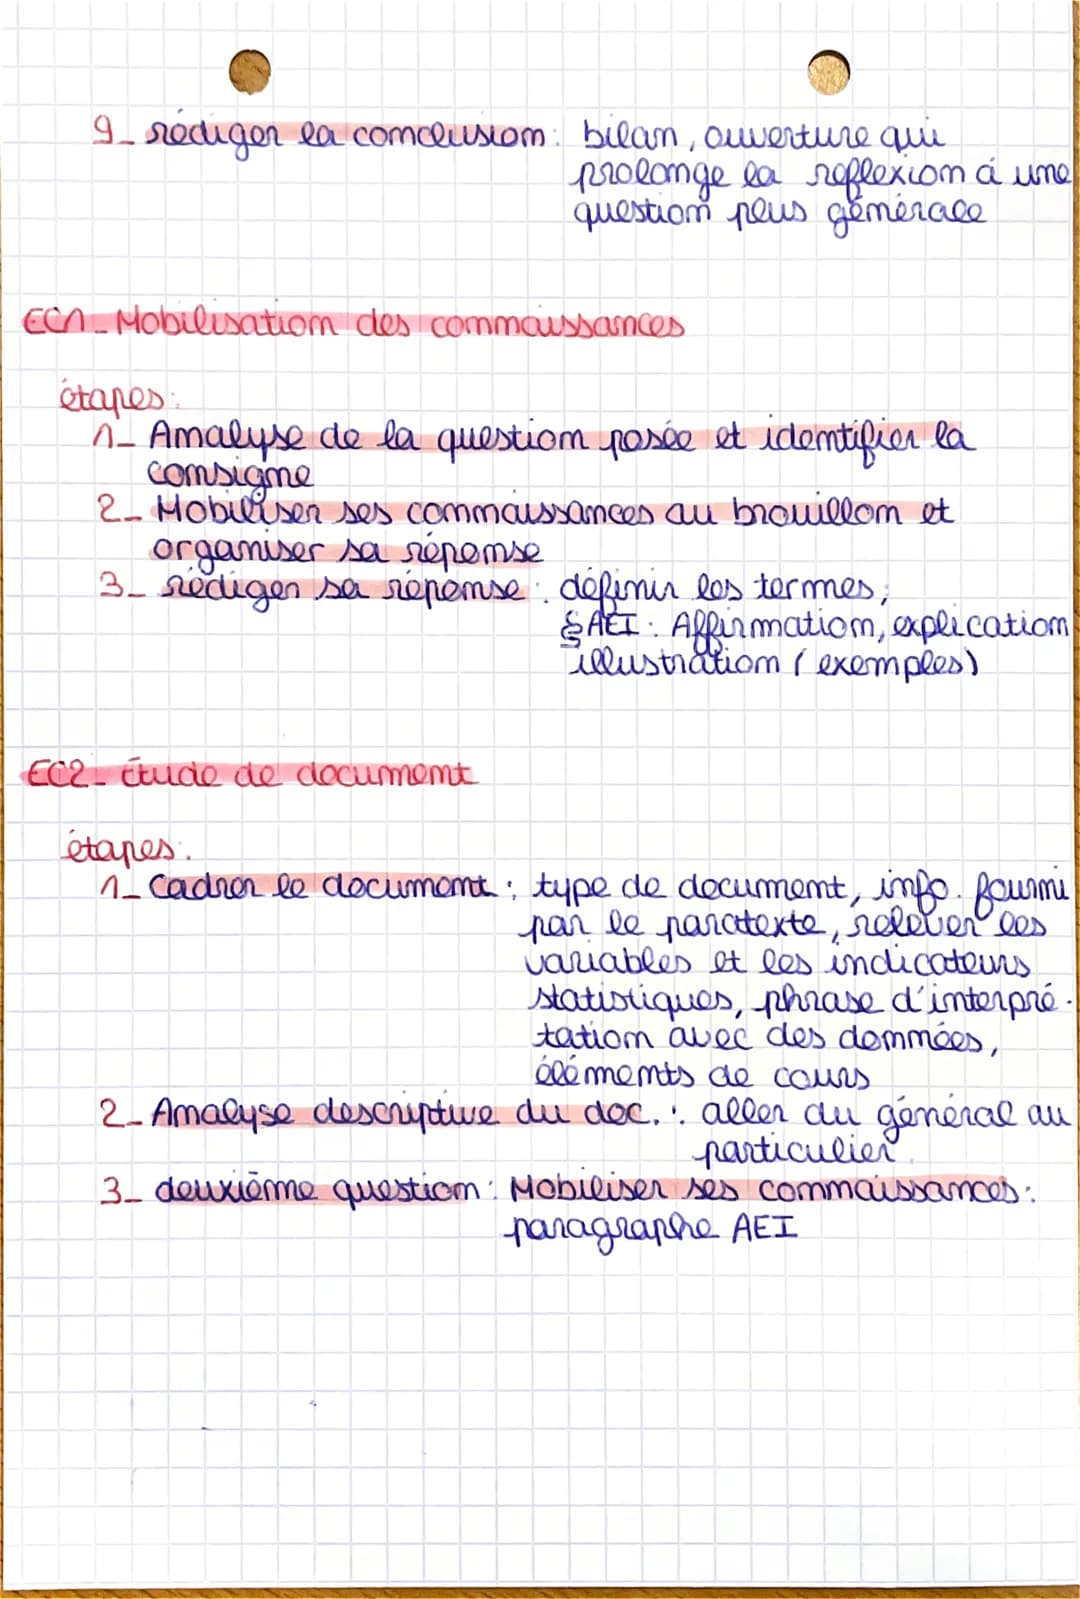 9_ rédiger la conclusion : bilan, ouverture qui
prolonge la reflexion à une
question plus générale
EC1_Mobilisation des connaissances
étapes :
1_ Analyse de la question posée et identifier la
consigne
2_ Mobiliser ses connaissances au brouillon et
organiser sa réponse
3_ rédiger sa réponse : définir les termes ;
§ AEI : Affirmation, explication
illustration (exemples)
EC2_ étude de document
étapes :
1_ Cadrer le document : type de document, info. fourni
par le paratexte, relever les
variables et les indicateurs
statistiques, phrase d'interpré-
tation avec des données,
éléments de cours
2_ Analyse descriptive du doc. : aller du général au
particulier
3_ deuxième question : Mobiliser ses connaissances :
paragraphe AEI